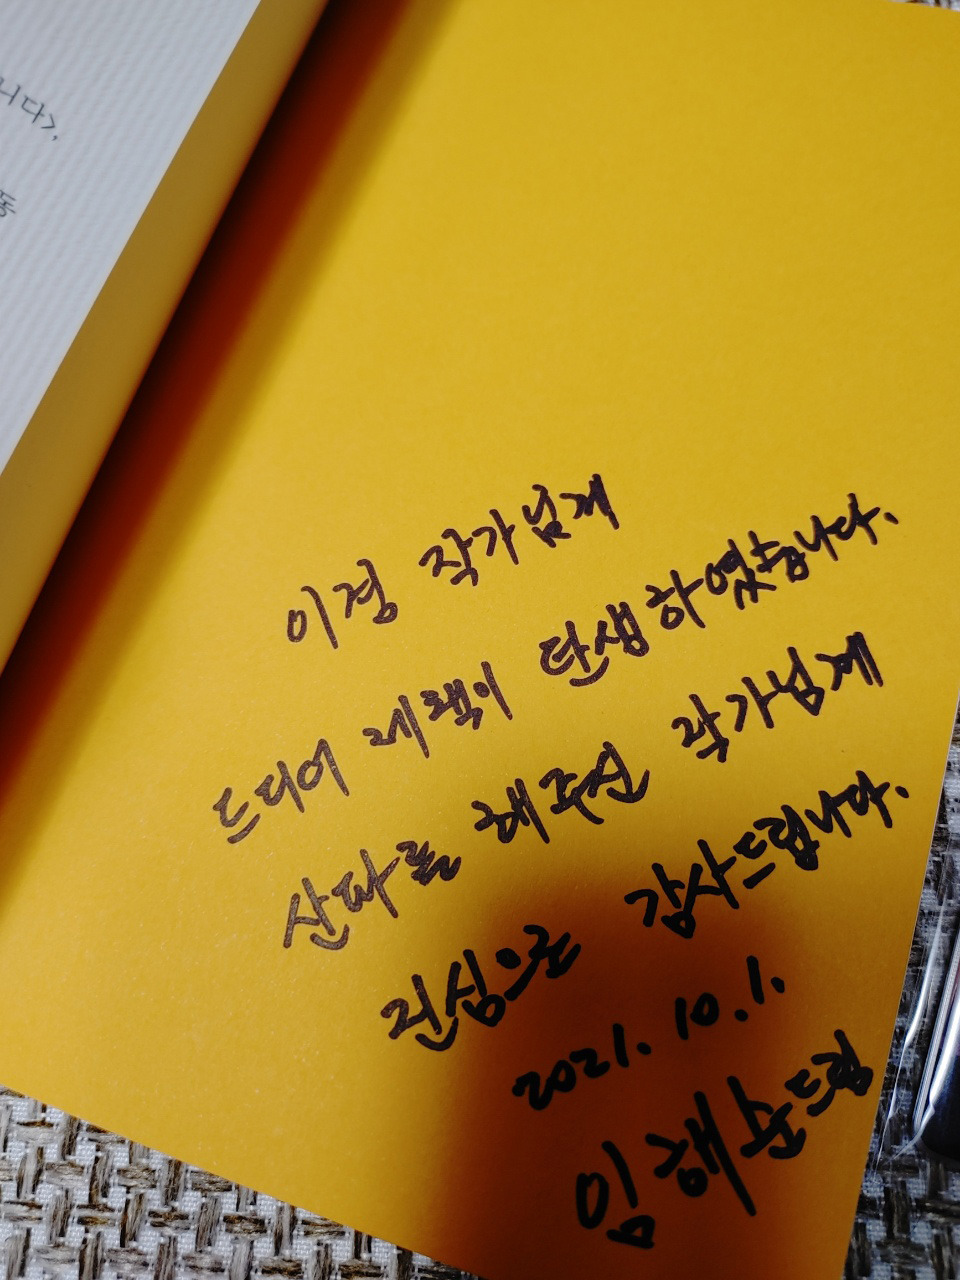 니다>,
동
이경 작가님께
드디어 제책이 탄생하였습니다.
산파를 해주신 작가님께
진심으로 감사드립니다.
2021. 10. 1.
임해순드림